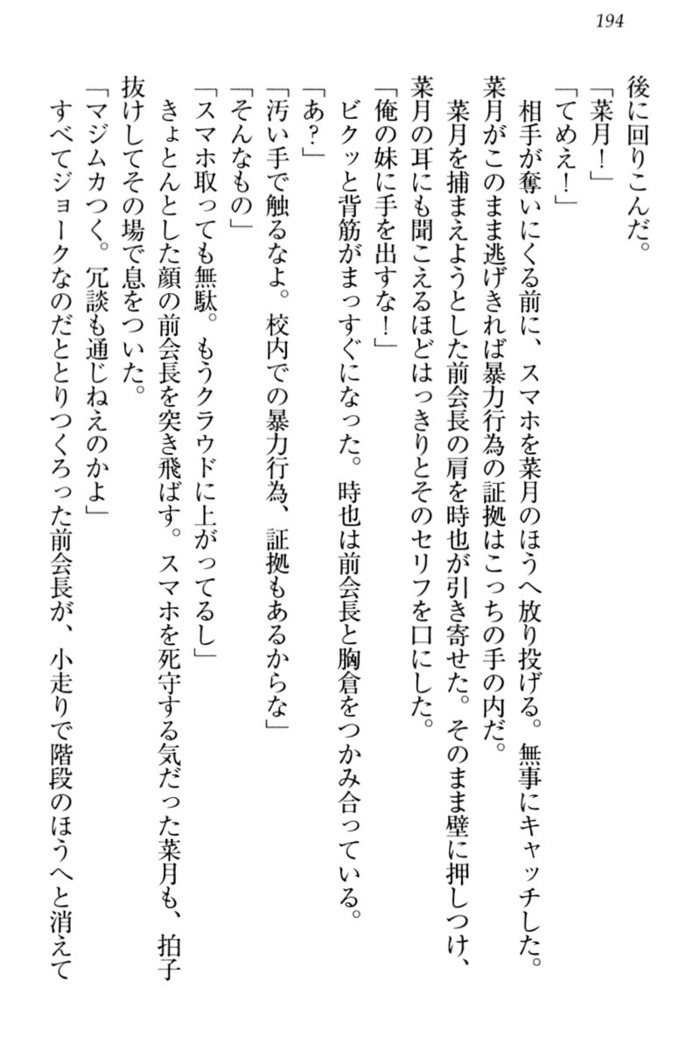 194
後に回りこんだ。
「菜月！」
「てめえ！」
相手が奪いにくる前に、スマホを菜月のほうへ放り投げる。無事にキャッチした。
菜月がこのまま逃げきれば暴力行為の証拠はこっちの手の内だ。
菜月を捕まえようとした前会長の肩を時也が引き寄せた。そのまま壁に押しつけ、
菜月の耳にも聞こえるほどはっきりとそのセリフを口にした。
「俺の妹に手を出すな！」
ビクッと背筋がまっすぐになった。時也は前会長と胸倉をつかみ合っている。
「あ？」
「汚い手で触るなよ。校内での暴力行為、証拠もあるからな」
「そんなもの」
「スマホ取っても無駄。もうクラウドに上がってるし」
きょとんとした顔の前会長を突き飛ばす。スマホを死守する気だった菜月も、拍子
抜けしてその場で息をついた。
「マジムカつく。冗談も通じねえのかよ」
すべてジョークなのだととりつくろった前会長が、小走りで階段のほうへと消えて